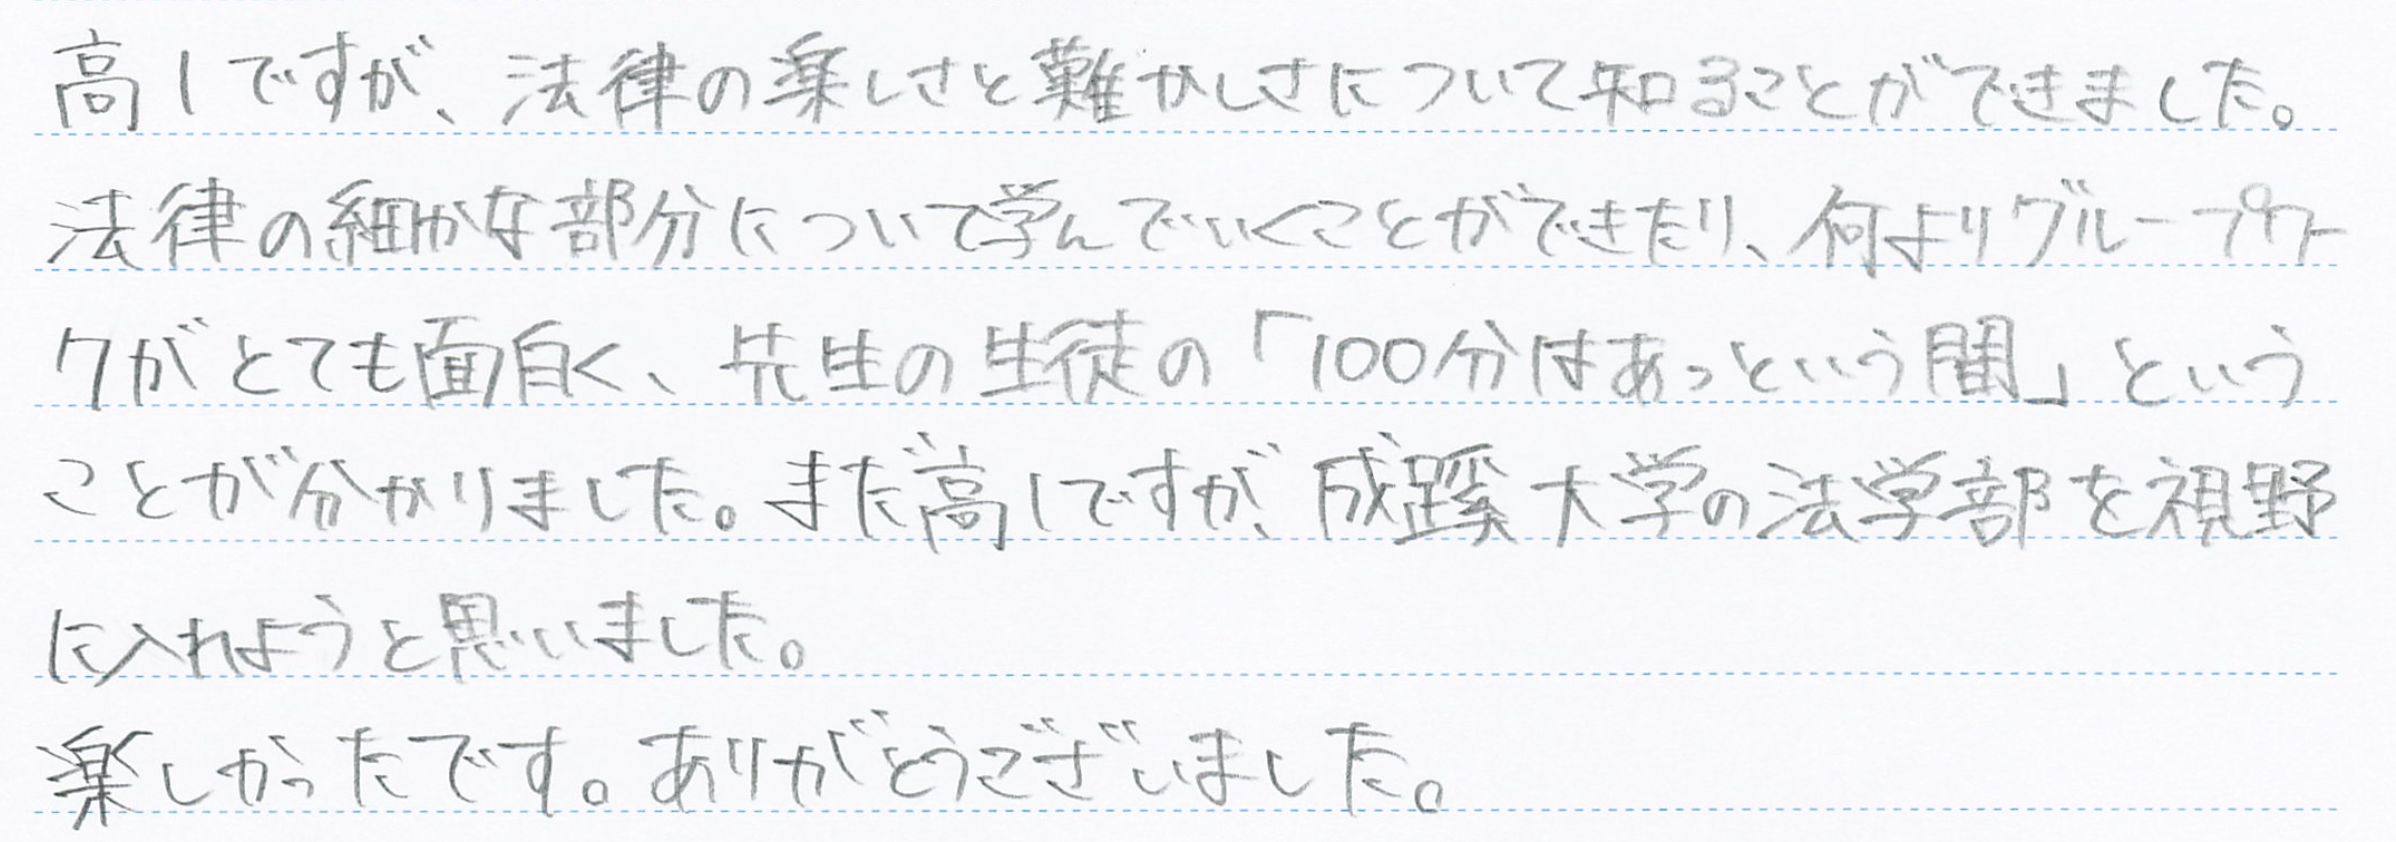 高1ですが、法律の楽しさと難かしさについて知ることができました。
法律の細かな部分について学んでいくことができたり、何よりグループワー
クがとても面白く、先生の生徒の「100分はあっという間」という
ことが分かりました。まだ高1ですが、成蹊大学の法学部を視野
に入れようと思いました。
楽しかったです。ありがとうございました。